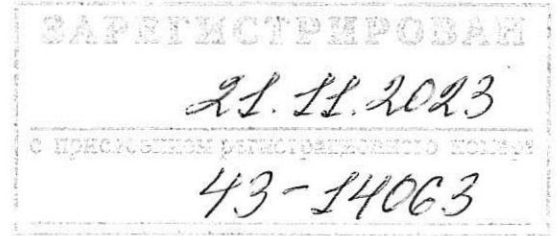 ЗАРЕГИСТРИРОВАН
21.11.2023
с присвоением регистрационного номера
43-14063